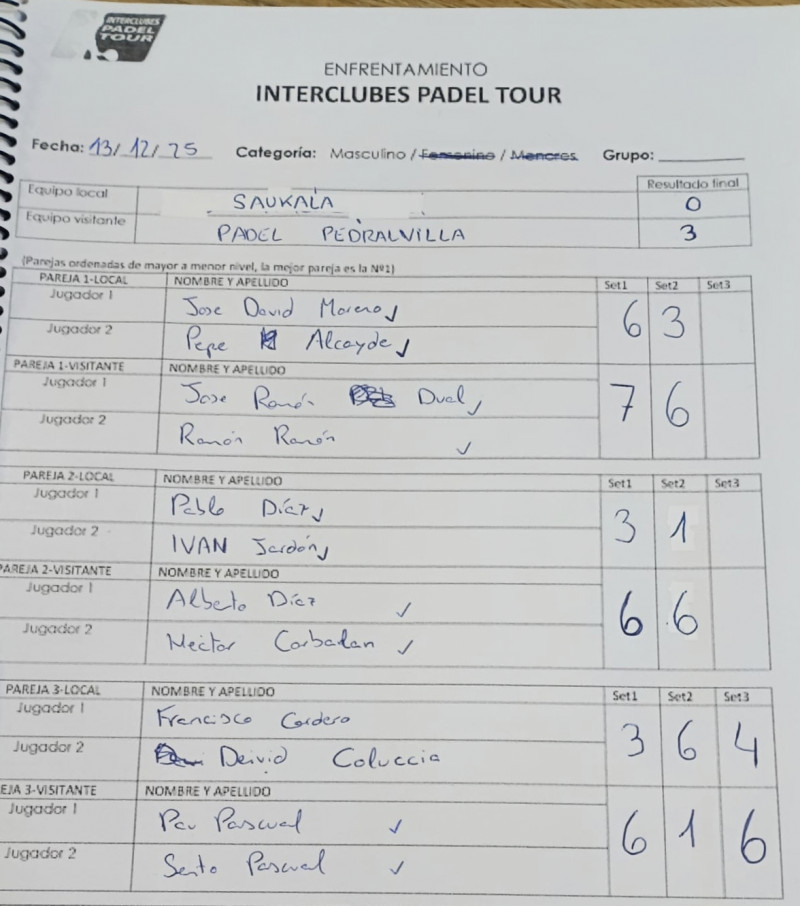 INTERCLUBES
PADEL
TOUR
ENFRENTAMIENTO
INTERCLUBES PADEL TOUR
Fecha: 13/12/25 Categoría: Masculino / Femenino / Menores Grupo:
Resultado final
Equipo local SAUKALA 0
Equipo visitante PADEL PEDRALVILLA 3
(Parejas ordenadas de mayor a menor nivel, la mejor pareja es la Nº1)
PAREJA 1-LOCAL NOMBRE Y APELLIDO Set1 Set2 Set3
Jugador 1 Jose David Moreno 6 3
Jugador 2 Pepe Alcayde
PAREJA 1-VISITANTE NOMBRE Y APELLIDO
Jugador 1 Jose Ramón Dual 7 6
Jugador 2 Ramón Ramón
PAREJA 2-LOCAL NOMBRE Y APELLIDO Set1 Set2 Set3
Jugador 1 Pablo Díaz 3 1
Jugador 2 IVAN Jardón
PAREJA 2-VISITANTE NOMBRE Y APELLIDO
Jugador 1 Alberto Díaz 6 6
Jugador 2 Hector Carbalan
PAREJA 3-LOCAL NOMBRE Y APELLIDO Set1 Set2 Set3
Jugador 1 Francisco Cordero 3 6 4
Jugador 2 Deivid Coluccia
EJA 3-VISITANTE NOMBRE Y APELLIDO
Jugador 1 Pau Pascual 6 1 6
Jugador 2 Sento Pascual